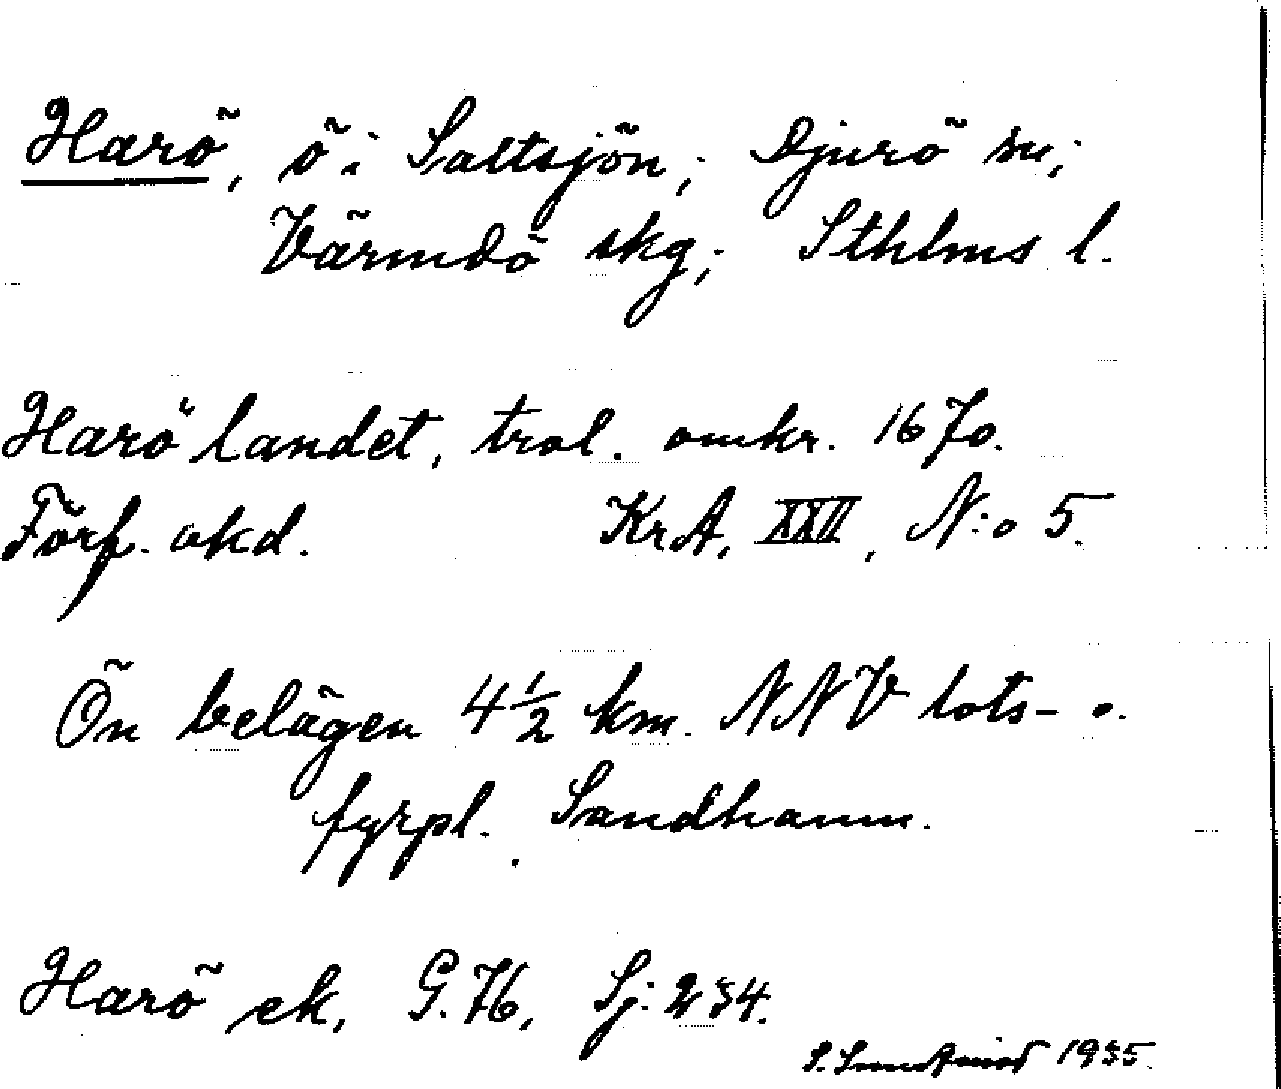 Harö, ö i Saltsjön; Djurö sn;
Värmdö skg; Sthlms l.
Harö landet, trol. omkr. 1670.
Förf. okd. KrA, XXII, N:o 5.
Ön belägen 4½ km. NNV lots- o.
fyrpl. Sandhamn.
Harö ek, G. 76, Sj: 234.
S. 1935.